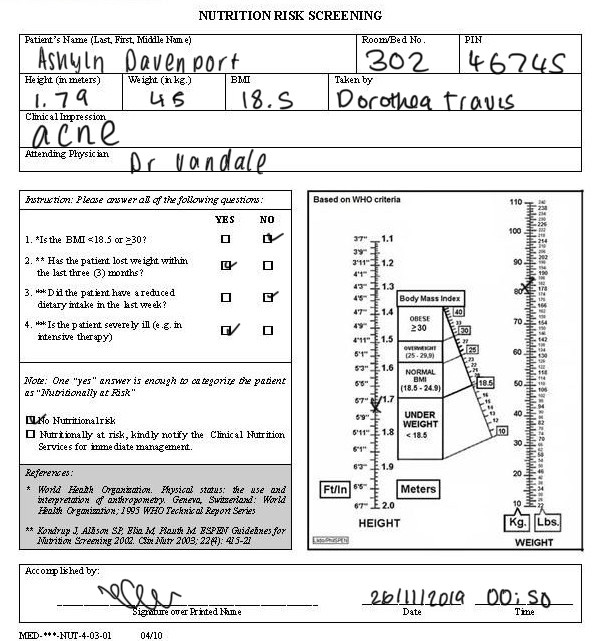 NUTRITION RISK SCREENING
Patient's Name (Last, First, Middle Name) Room/Bed No. PIN
Ashyln Davenport 302 46745
Height (in meters) Weight (in kg.) BMI Taken by
1.79 45 18.5 Dorothea travis
Clinical Impression
acne
Attending Physician
Dr vandale
Instruction: Please answer all of the following questions:
YES NO
1. *Is the BMI <18.5 or ≥30?
2. ** Has the patient lost weight within
the last three (3) months?
3. **Did the patient have a reduced
dietary intake in the last week?
4. **Is the patient severely ill (e.g. in
intensive therapy)
Note: One "yes" answer is enough to categorize the patient
as "Nutritionally at Risk"
No Nutritional risk
Nutritionally at risk, kindly notify the Clinical Nutrition
Services for immediate management.
References:
* World Health Organization. Physical status: the use and
interpretation of anthropometry. Geneva, Switzerland: World
Health Organization; 1995 WHO Technical Report Series
** Kondrup J, Allison SP, Elia M, Plauth M. ESPEN Guidelines for
Nutrition Screening 2002. Clin Nutr 2003; 22(4): 415-21
Based on WHO criteria
3'7" 1.1
3'9"
3'11" 1.2
4'1"
4'3" 1.3
4'5"
4'7" 1.4
4'9"
4'11" 1.5
5'1"
5'3" 1.6
5'5"
5'7" 1.7
5'9"
5'11" 1.8
6'1"
6'3" 1.9
6'5"
6'7" 2.0
Ft/In Meters
HEIGHT
Body Mass Index
OBESE
≥30
OVERWEIGHT
(25 - 29,9)
NORMAL
BMI
(18.5 - 24.9)
UNDER
WEIGHT
< 18.5
40
30
25
18.5
10
110
100
90
80
70
60
50
40
30
20
10
Kg. Lbs.
WEIGHT
Accomplished by:
26/11/2019 00:50
Signature over Printed Name Date Time
MED-***-NUT-4-03-01 04/10